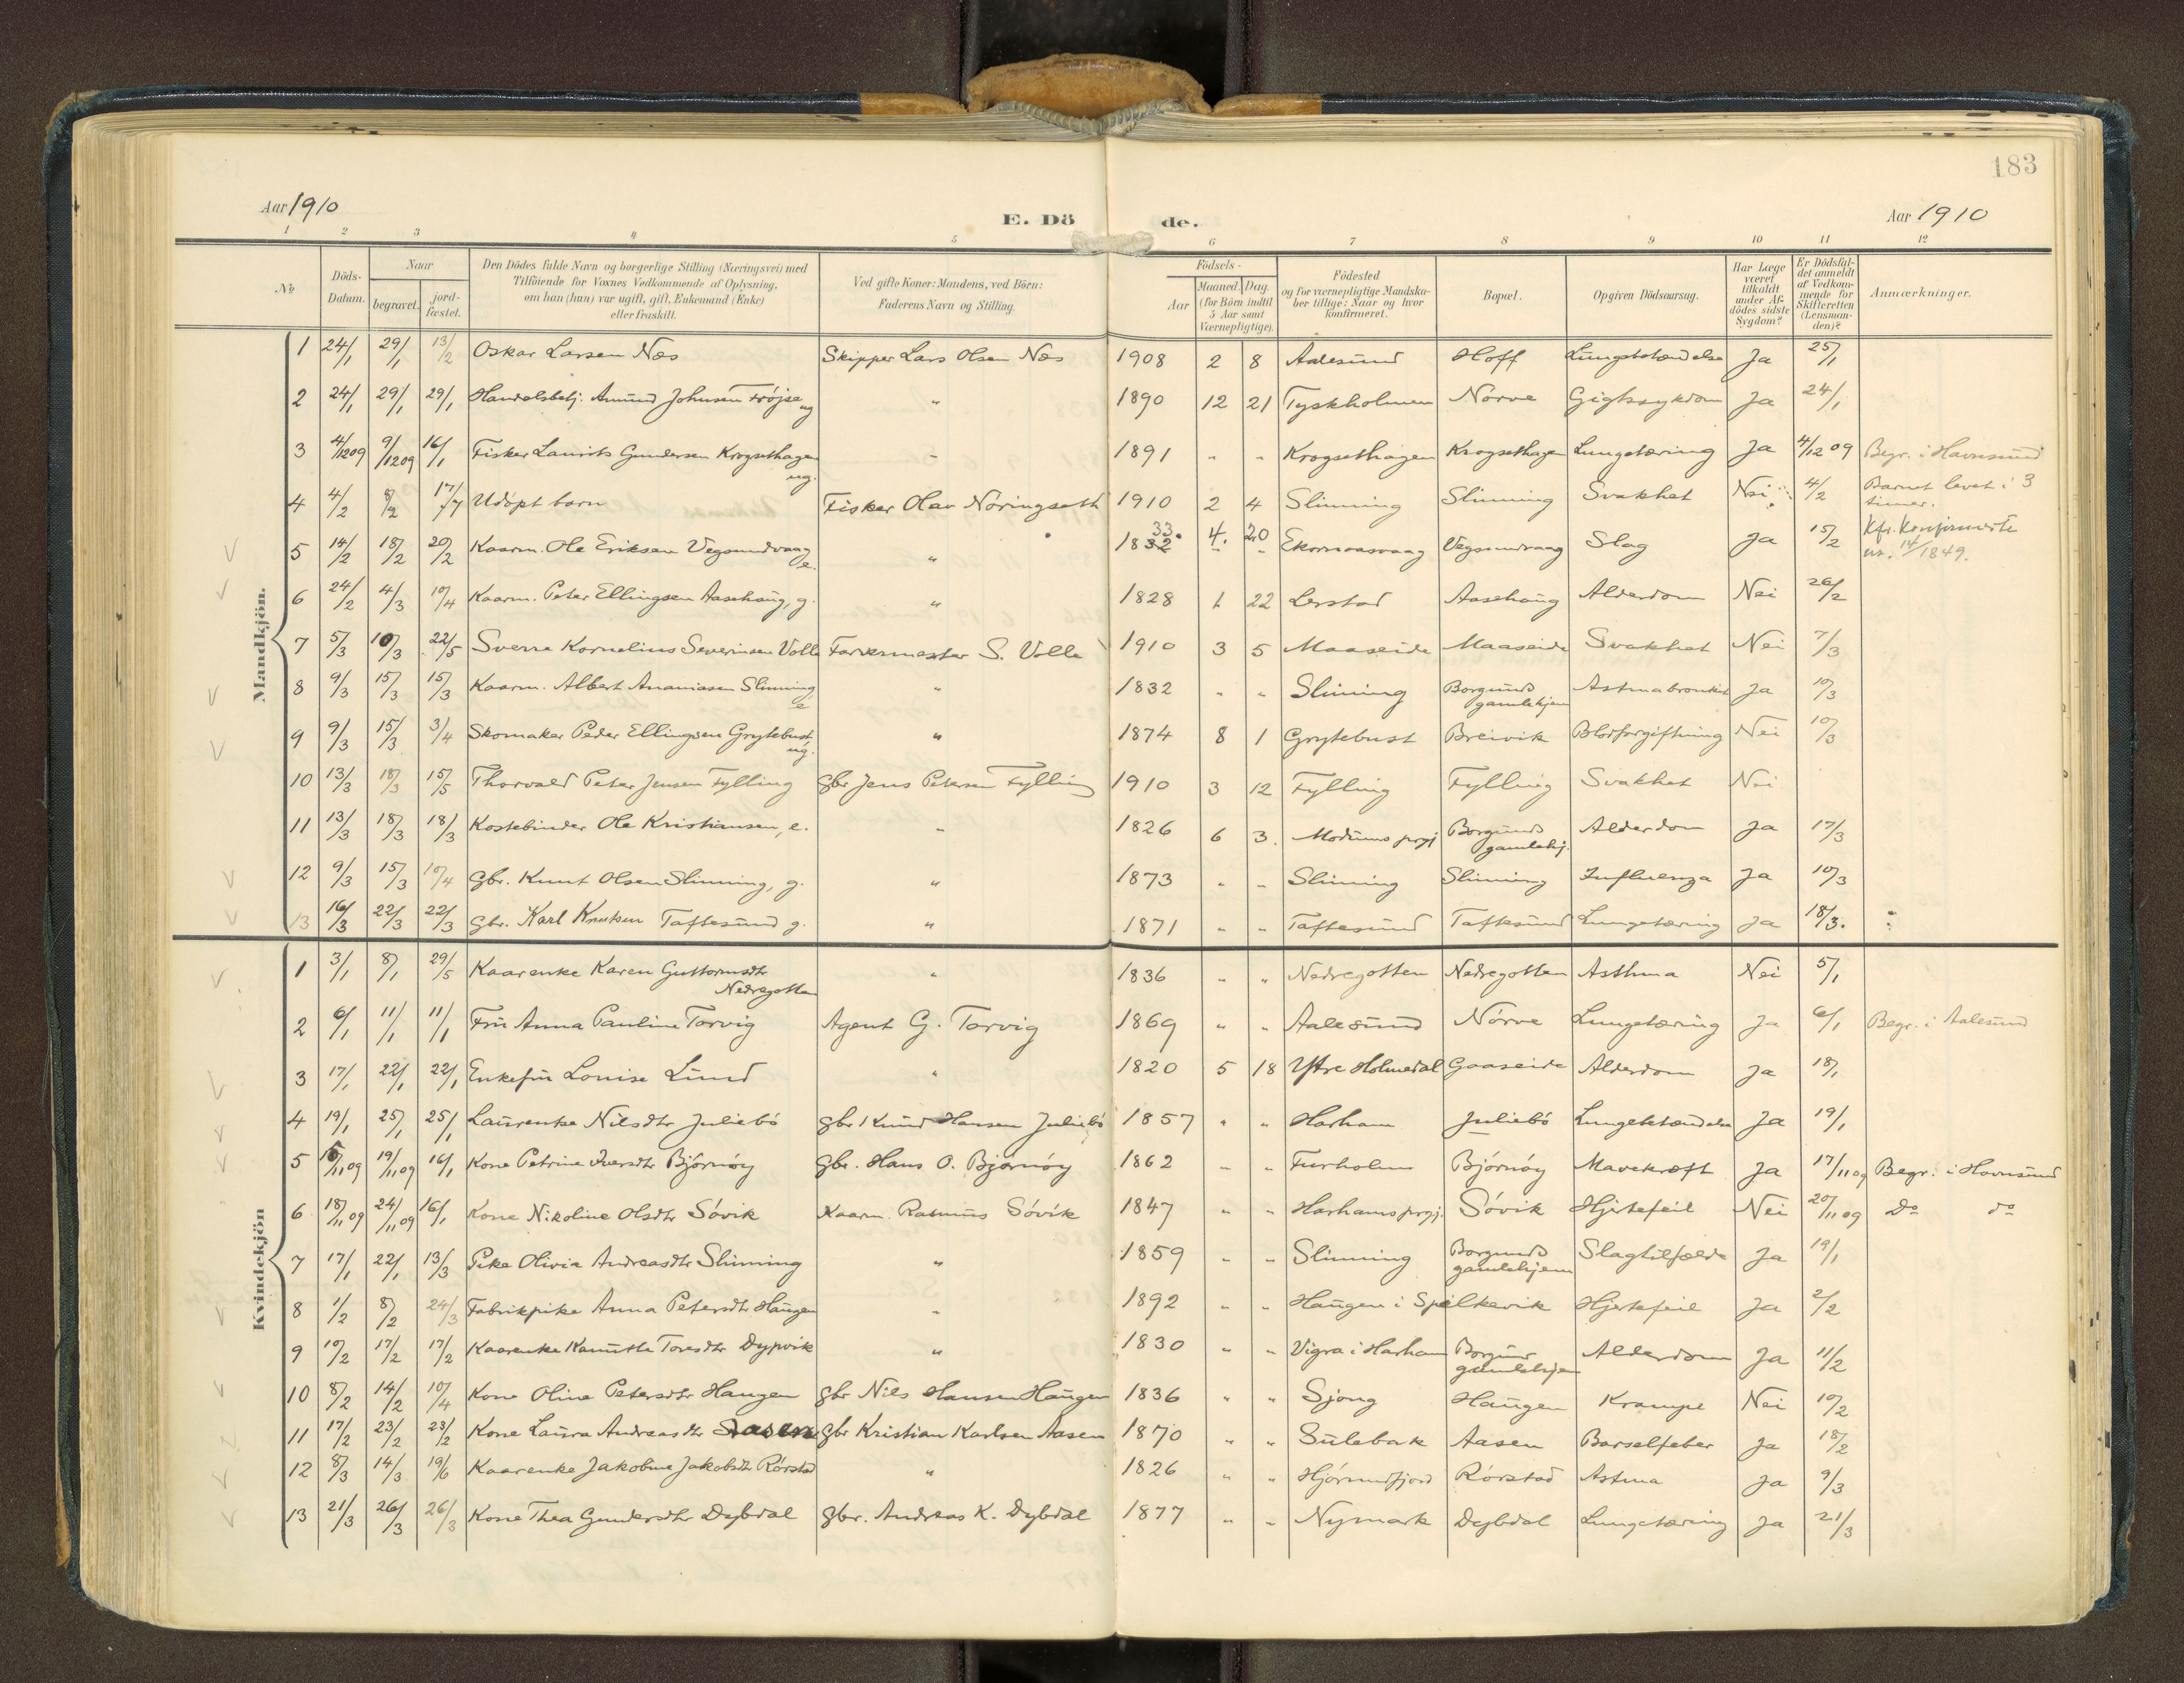 183
Aar 1910 E. Dö de. Aar 1910
1 2 3 4 5 6 7 8 9 10 11 12
№
Döds-Datum.
Naar
begravet.
jord-fæstet.
Den Dödes fulde Navn og borgerlige Stilling (Næringsvei) med
Tilföiende for Voxnes Vedkommende af Oplysning,
om han (hun) var ugift, gift, Enkemand (Enke)
eller fraskilt.
Ved gifte Koner: Mandens, ved Börn:
Faderens Navn og Stilling.
Födsels-
Aar
Maaned. Dag.
(for Börn indtil
5 Aar samt
Værnepligtige).
Födested
og for værnepligtige Mandska-
ber tillige: Naar og hvor
konfirmeret.
Bopæl.
Opgiven Dödsaarsag.
Har Læge
været
tilkaldt
under Af-
dödes sidste
Sygdom?
Er Dödsfal-
det anmeldt
af Vedkom-
mende for
Skifteretten
(Lensman-
den)?
Anmærkninger.
Mandkjön.
1 24/1 29/1 13/2 Oskar Larsen Næs Skipper Lars Olsen Næs 1908 2 8 Aalesund Hoff Lungebetændelse Ja 25/1
2 24/1 29/1 29/1 Handelsbetj. Amund Johnsen Frøjse ug " 1890 12 21 Tyskholmen Nørve Gigtsygdom Ja 24/1
3 4/12 09 9/12 09 16/1 Fisker Laurits Gundersen Krogsethagen ug. " 1891 " " Krogsethagen Krogsethagen Lungetæring Ja 4/12 09 Begr. i Havnsund
4 4/2 8/2 17/7 Udöpt barn Fisker Olav Nöringseth 1910 2 4 Slinning Slinning Svakhet Nei 4/2 Barnet levet i 3
timer.
5 14/2 18/2 20/2 Kaarm. Ole Eriksen Vegsundvaag e. " 1832 33. 4. 20 Ekornaasvaag Vegsundvaag Slag Ja 15/2 Kfr. konfirmerte
nr. 14/1849.
6 24/2 4/3 10/4 Kaarm. Peter Ellingsen Aasehaug, g. " 1828 1 22 Lerstad Aasehaug Alderdom Nei 26/2
7 5/3 10/3 22/5 Sverre Kornelius Severinsen Volle Farvermester S. Volle 1910 3 5 Maaseide Maaseide Svakhet Nei 7/3
8 9/3 15/3 15/3 Kaarm. Albert Ananiasen Slinning e " 1832 " " Slinning Borgund gamlehjem Astmabronkit Ja 10/3
9 9/3 15/3 3/4 Skomaker Peder Ellingsen Grytebust ug. " 1874 8 1 Grytebust Breivik Blodforgiftning Nei 10/3
10 13/3 18/3 15/5 Thorvald Peter Jensen Fylling Gbr Jens Petersen Fylling 1910 3 12 Fylling Fylling Svakhet Nei
11 13/3 18/3 18/3 Kostebinder Ole Kristiansen, e. " 1826 6 3. Modums prgj Borgund gamlehj. Alderdom Ja 17/3
12 9/3 15/3 10/4 Gbr. Knut Olsen Slinning, g. " 1873 " " Slinning Slinning Influenza Ja 10/3
13 16/3 22/3 22/3 Gbr. Karl Knutsen Taftesund g. " 1871 " " Taftesund Taftesund Lungetæring Ja 18/3.
Kvindekjön
1 3/1 8/1 29/5 Kaarenke Karen Guttormsdtr Nedregotten " 1836 " " Nedregotten Nedregotten Asthma Nei 5/1
2 6/1 11/1 11/1 Fru Anna Pauline Torvig Agent G. Torvig 1869 " " Aalesund Nörve Lungetæring Ja 6/1 Begr. i Aalesund
3 17/1 22/1 22/1 Enkefru Louise Lund " 1820 5 18 Yttre Holmedal Gaaseide Alderdom Ja 18/1
4 19/1 25/1 25/1 Laurentse Nilsdtr Juliebö Gbr Knud Hansen Juliebö 1857 " " Harham Juliebö Lungebetændelse Ja 19/1
5 15/11 09 19/11 09 16/1 Kone Petrine Iversdtr Björnöy Gbr. Hans O. Björnöy 1862 " " Furholm Björnöy Mavekræft Ja 17/11 09 Begr. i Havnsund
6 18/11 09 24/11 09 16/1 Kone Nikoline Olsdtr Sövik Kaarm. Rasmus Sövik 1847 " " Harhams prgj. Sövik Hjertefeil Nei 20/11 09 Do do
7 17/1 22/1 13/3 Pike Olivia Andreasdtr Slinning " 1859 " " Slinning Borgund gamlehjem Slagtilfælde Ja 19/1
8 1/2 8/2 24/3 Fabrikpike Anna Petersdtr Haugen " 1892 " " Haugen i Spjelkevik Hjertefeil Ja 2/2
9 10/2 17/2 17/2 Kaarenke Kanutte Toresdtr Dypvik " 1830 " " Vigra i Harham Borgund gamlehjem Alderdom Ja 11/2
10 8/2 14/2 10/4 Kone Oline Petersdtr Haugen Gbr Nils Hansen Haugen 1836 " " Sjong Haugen Krampe Nei 10/2
11 17/2 23/2 23/2 Kone Laura Andreasdtr Aasen Gbr Kristian Karlsen Aasen 1870 " " Sulebak Aasen Barselfeber Ja 18/2
12 8/3 14/3 19/6 Kaarenke Jakobine Jakobsdtr Rörstad " 1826 " " Hjörundfjord Rörstad Astma Ja 9/3
13 21/3 26/3 26/3 Kone Thea Gundersdtr Dybdal Gbr. Andreas K. Dybdal 1877 " " Nymark Dybdal Lungetæring Ja 21/3